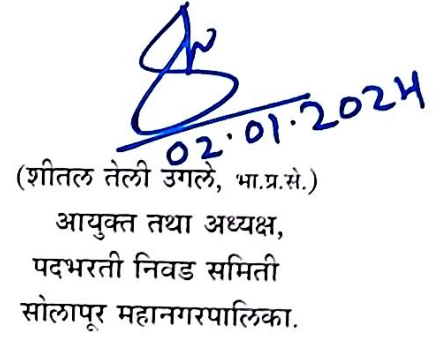 02.01.2024
(शीतल तेली उगले, भा.प्र.से.)
आयुक्त तथा अध्यक्ष,
पदभरती निवड समिती
सोलापूर महानगरपालिका.